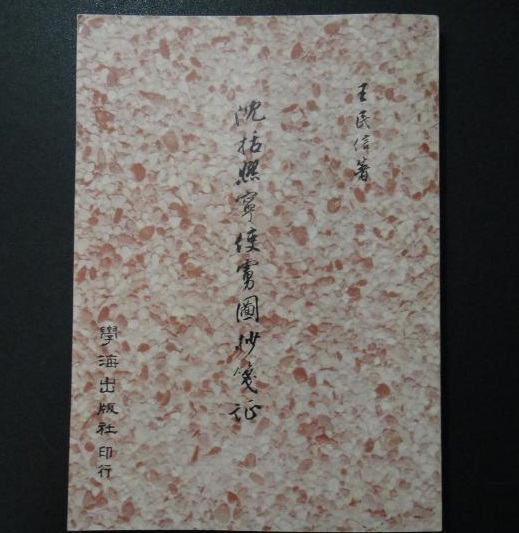 王民信著
沈括熙寧使虜圖抄箋証
學海出版社印行